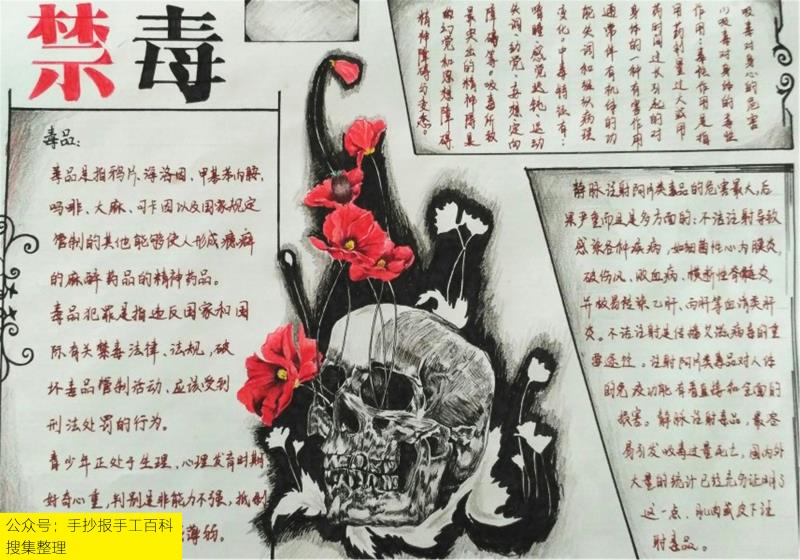 禁毒
毒品:
毒品是指鸦片、海洛因、甲基苯丙胺、
吗啡、大麻、可卡因以及国家规定
管制的其他能够使人形成瘾癖
的麻醉药品的精神药品。
毒品犯罪是指违反国家和国
际有关禁毒法律、法规，破
坏毒品管制活动、应该受到
刑法处罚的行为。
青少年正处于生理、心理发育时期
好奇心重，判别是非能力不强，抵制
薄弱。
吸毒对身心的危害
吸毒对身体的毒性
作用：毒性作用是指
用药剂量过大或用
药时间过长引起的对
身体的一种有害作用
通常伴有机体的功
能失调和组织病理
变化。中毒特征有：
嗜睡、感觉迟钝、运动
失调、幻觉、妄想、定向
障碍等。吸毒所致
最突出的精神障是
的幻觉和思想障碍
精神障碍为变态。
静脉注射阿片类毒品的危害最大，后
果严重而且是多方面的：不洁注射导致
感染各种疾病，如细菌性心内膜炎，
破伤风、败血病、横断性脊髓炎，
并极易传染乙肝、丙肝等血清类肝
炎。不洁注射是传播艾滋病毒的重
要途径。注射阿片类毒品对人体
的免疫功能有着直接和全面的
损害。静脉注射毒品，最容
易引发吸毒过量死亡，国内外
大量的统计已经充份证明了
这一点、肌肉或皮下注
射毒品。
公众号：手抄报手工百科
搜集整理